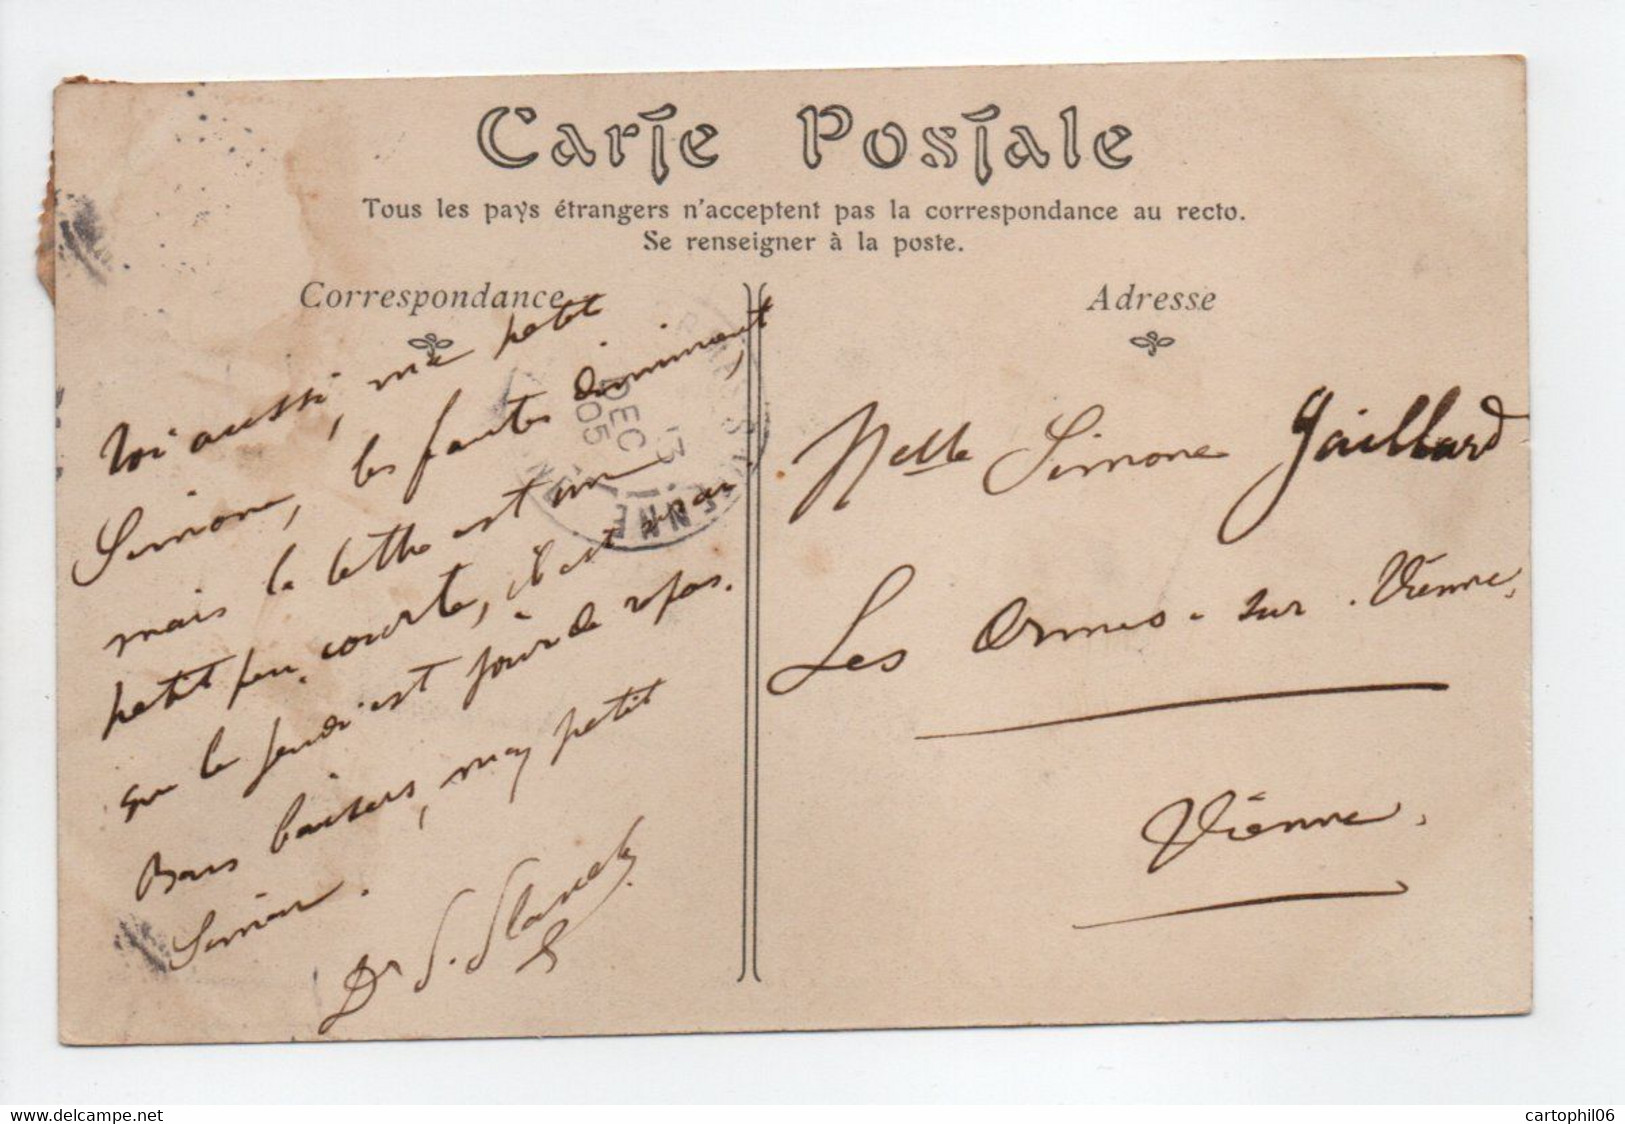 Carte Postale
Tous les pays étrangers n'acceptent pas la correspondance au recto.
Se renseigner à la poste.
Correspondance
Toi aussi, ma petit
Simone, les fautes diminuent,
mais la lettre est un
petit peu courte, il est vrai
que le jeudi est jour de repos.
Bons baisers, my petit
Simon.
Dr S.
Adresse
Melle Simone Gaillard
Les Ormes-sur-Vienne,
Vienne.
13
DEC
05
VIENNE
www.delcampe.net
cartophil06